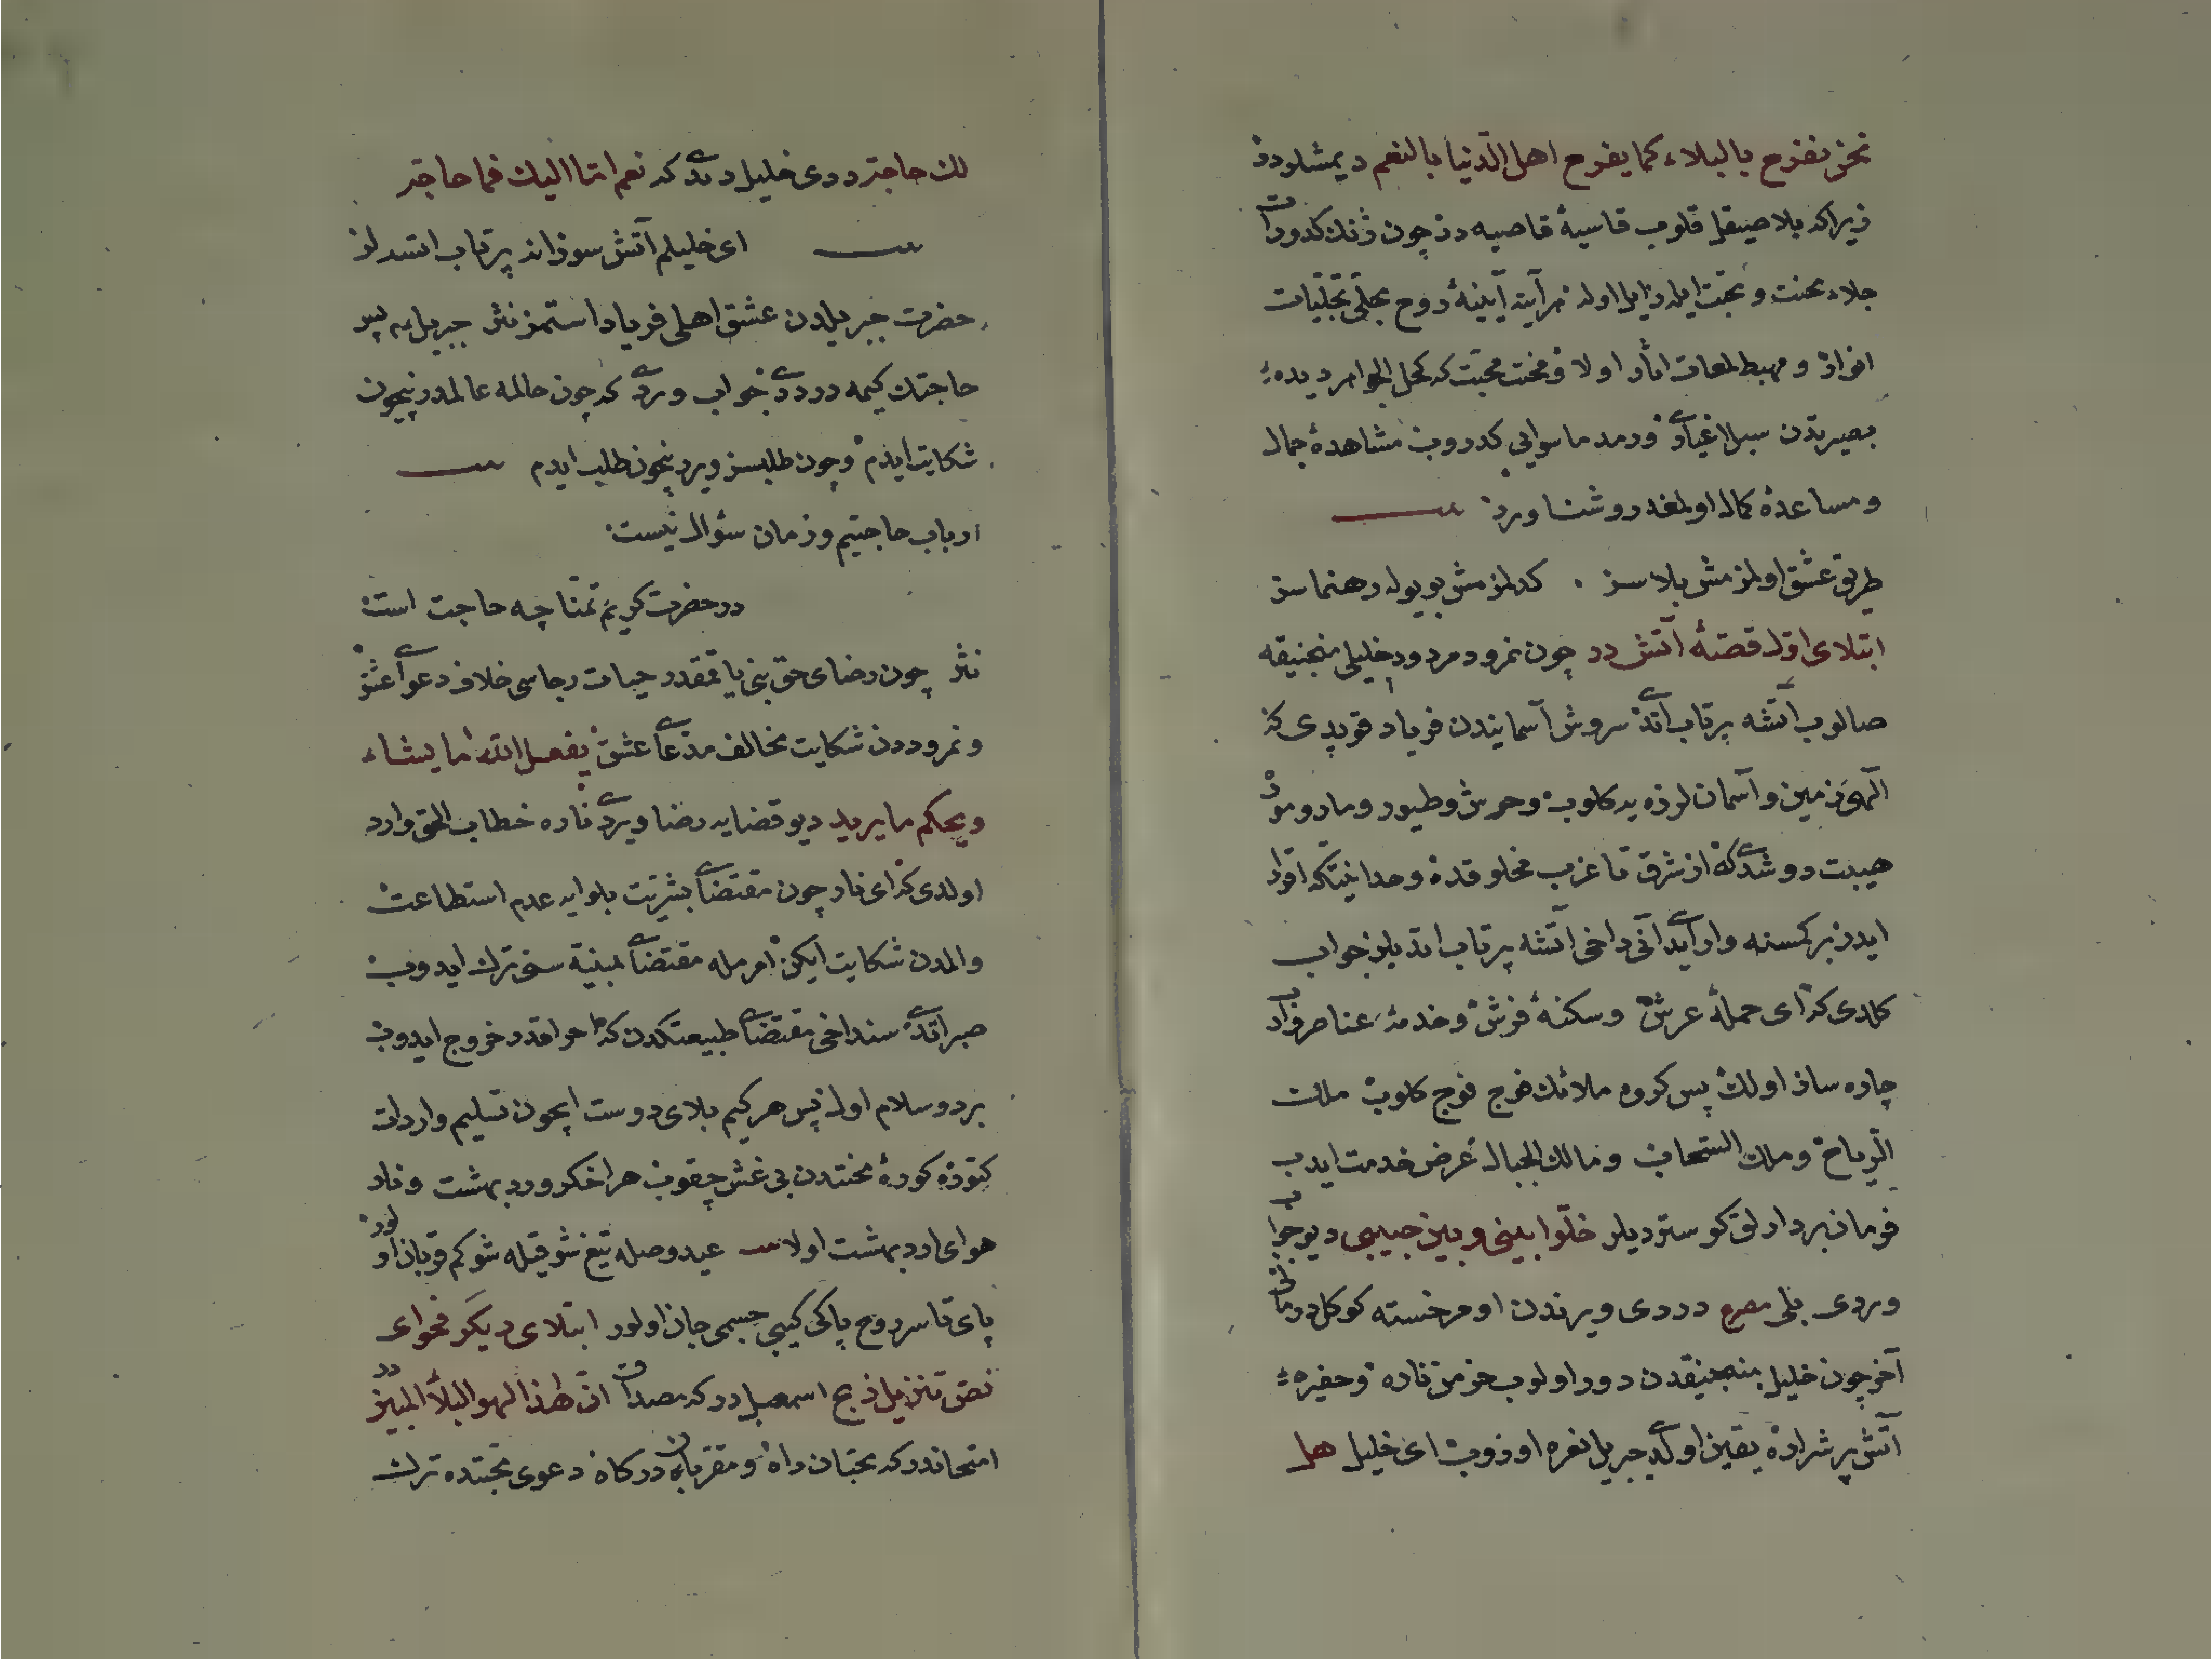 نحن نفرح بالبلاء كما يفرح اهل الدنيا بالنعم ديمشلردر
زيراكه بلا صيقل قلوب قاسيۀ قاصيه در چون ژنك كدورات
جلاء محنت و محبت ايله زايل اوله مرآت آيينۀ روح مجلئ تجليات
انوار و مهبط لمعات آثار اولا و محنت محبت كه كحل الجواهر ديدۀ
بصيرتدن سبل اغيار و رمد ماسوايى كدروب مشاهدۀ جمال
و مساعدۀ كمال اولمغه روشنا ويرر
طريق عشق اولمز مش بلاسز كدلمز مش بو يوله رهنماسز
ابتلاى اول قصۀ آتش در چون نمرود مردود خليلى منجنيقه
صالوب آتشه پرتاب اتدى سروش آسمانيدن فرياد قوپدى كه
الهى زمين و آسمان لرزه يه كلوب وحوش و طيور و مار و مور
هيبت دوشدى كه از شرق تا غرب مخلوقده وحدانيتكه اقرار
ايدر بر كمسنه وار ايدى آنى داخى آتشه پرتاب اتديلر جواب
كلدى كه اى حملۀ عرش و سكنۀ فرش و خدمۀ عناصر وار
چاره ساز اولك پس كروه ملائك فوج فوج كلوب ملك
الرياح و ملك السحاب و مالك الجبال عرض خدمت ايدب
فرمان بردارلق كوسترديلر خلوا بينى و بين حبيبى ديو جواب
وردى بلى مصرع دردى ويرندن اومر خسته كوكل درمانى
آخر چون خليل منجنيقدن دور اولوب خرمن ناره و حفيرۀ
آتش پر شراره يقين اولدى جبريل نعره اوروب اى خليل هل
لك حاجة ددى خليل ديدى كه نعم امّا اليك فما حاجة
اى خليلم آتش سوزانه پرتاب اتسه لر
حضرت جبريلدن عشق اهلى فرياد استمز نثر جبريل يه پس
حاجتك كيمه در ددى جواب وردى كه چون حالمه عالمدر نيچون
شكايت ايدم و چون طلبسز ويرر نيچون طلب ايدم
ارباب حاجتيم و زمان سؤال نيست
در حضرت كريم تمنا چه حاجت است
نثر چون رضاى حق بنى ياقمقدر حيات رجاسى خلاف دعوى عشق
و نمروددن شكايت مخالف مدعاى عشق يفعل الله ما يشاء
و يحكم ما يريد ديو قضايه رضا ويردى ناره خطاب الحق وارد
اولدى كه اى نار چون مقتضاى بشريت بلوايه عدم استطاعت
والمدن شكايت ايكن مقتضاى سنى ترك ايدوب
صبر اتدى سنداخى مقتضاى طبيعتكدن كه احراقدر خروج ايدوب
برد و سلام اول پس هر كيم بلاى دوست ايچون تسليم وارادت
كتوره كورۀ محنتدن بى غش چقوب هر اخكر ورد بهشت و نار
هواى ارد بهشت اولا عيد وصله تيغ شوقيله شو كم قربان اولور
پاى تا سر روح پاكى كيبى جسمى جان اولور ابتلاى ديكر فحواى
نص تنزيل ذبح اسمعيل در كه مصداق انّ هذا لهو البلاء المبين در
امتحاندر كه محبان راه و مقربان دركاه دعوى محبتده ترك